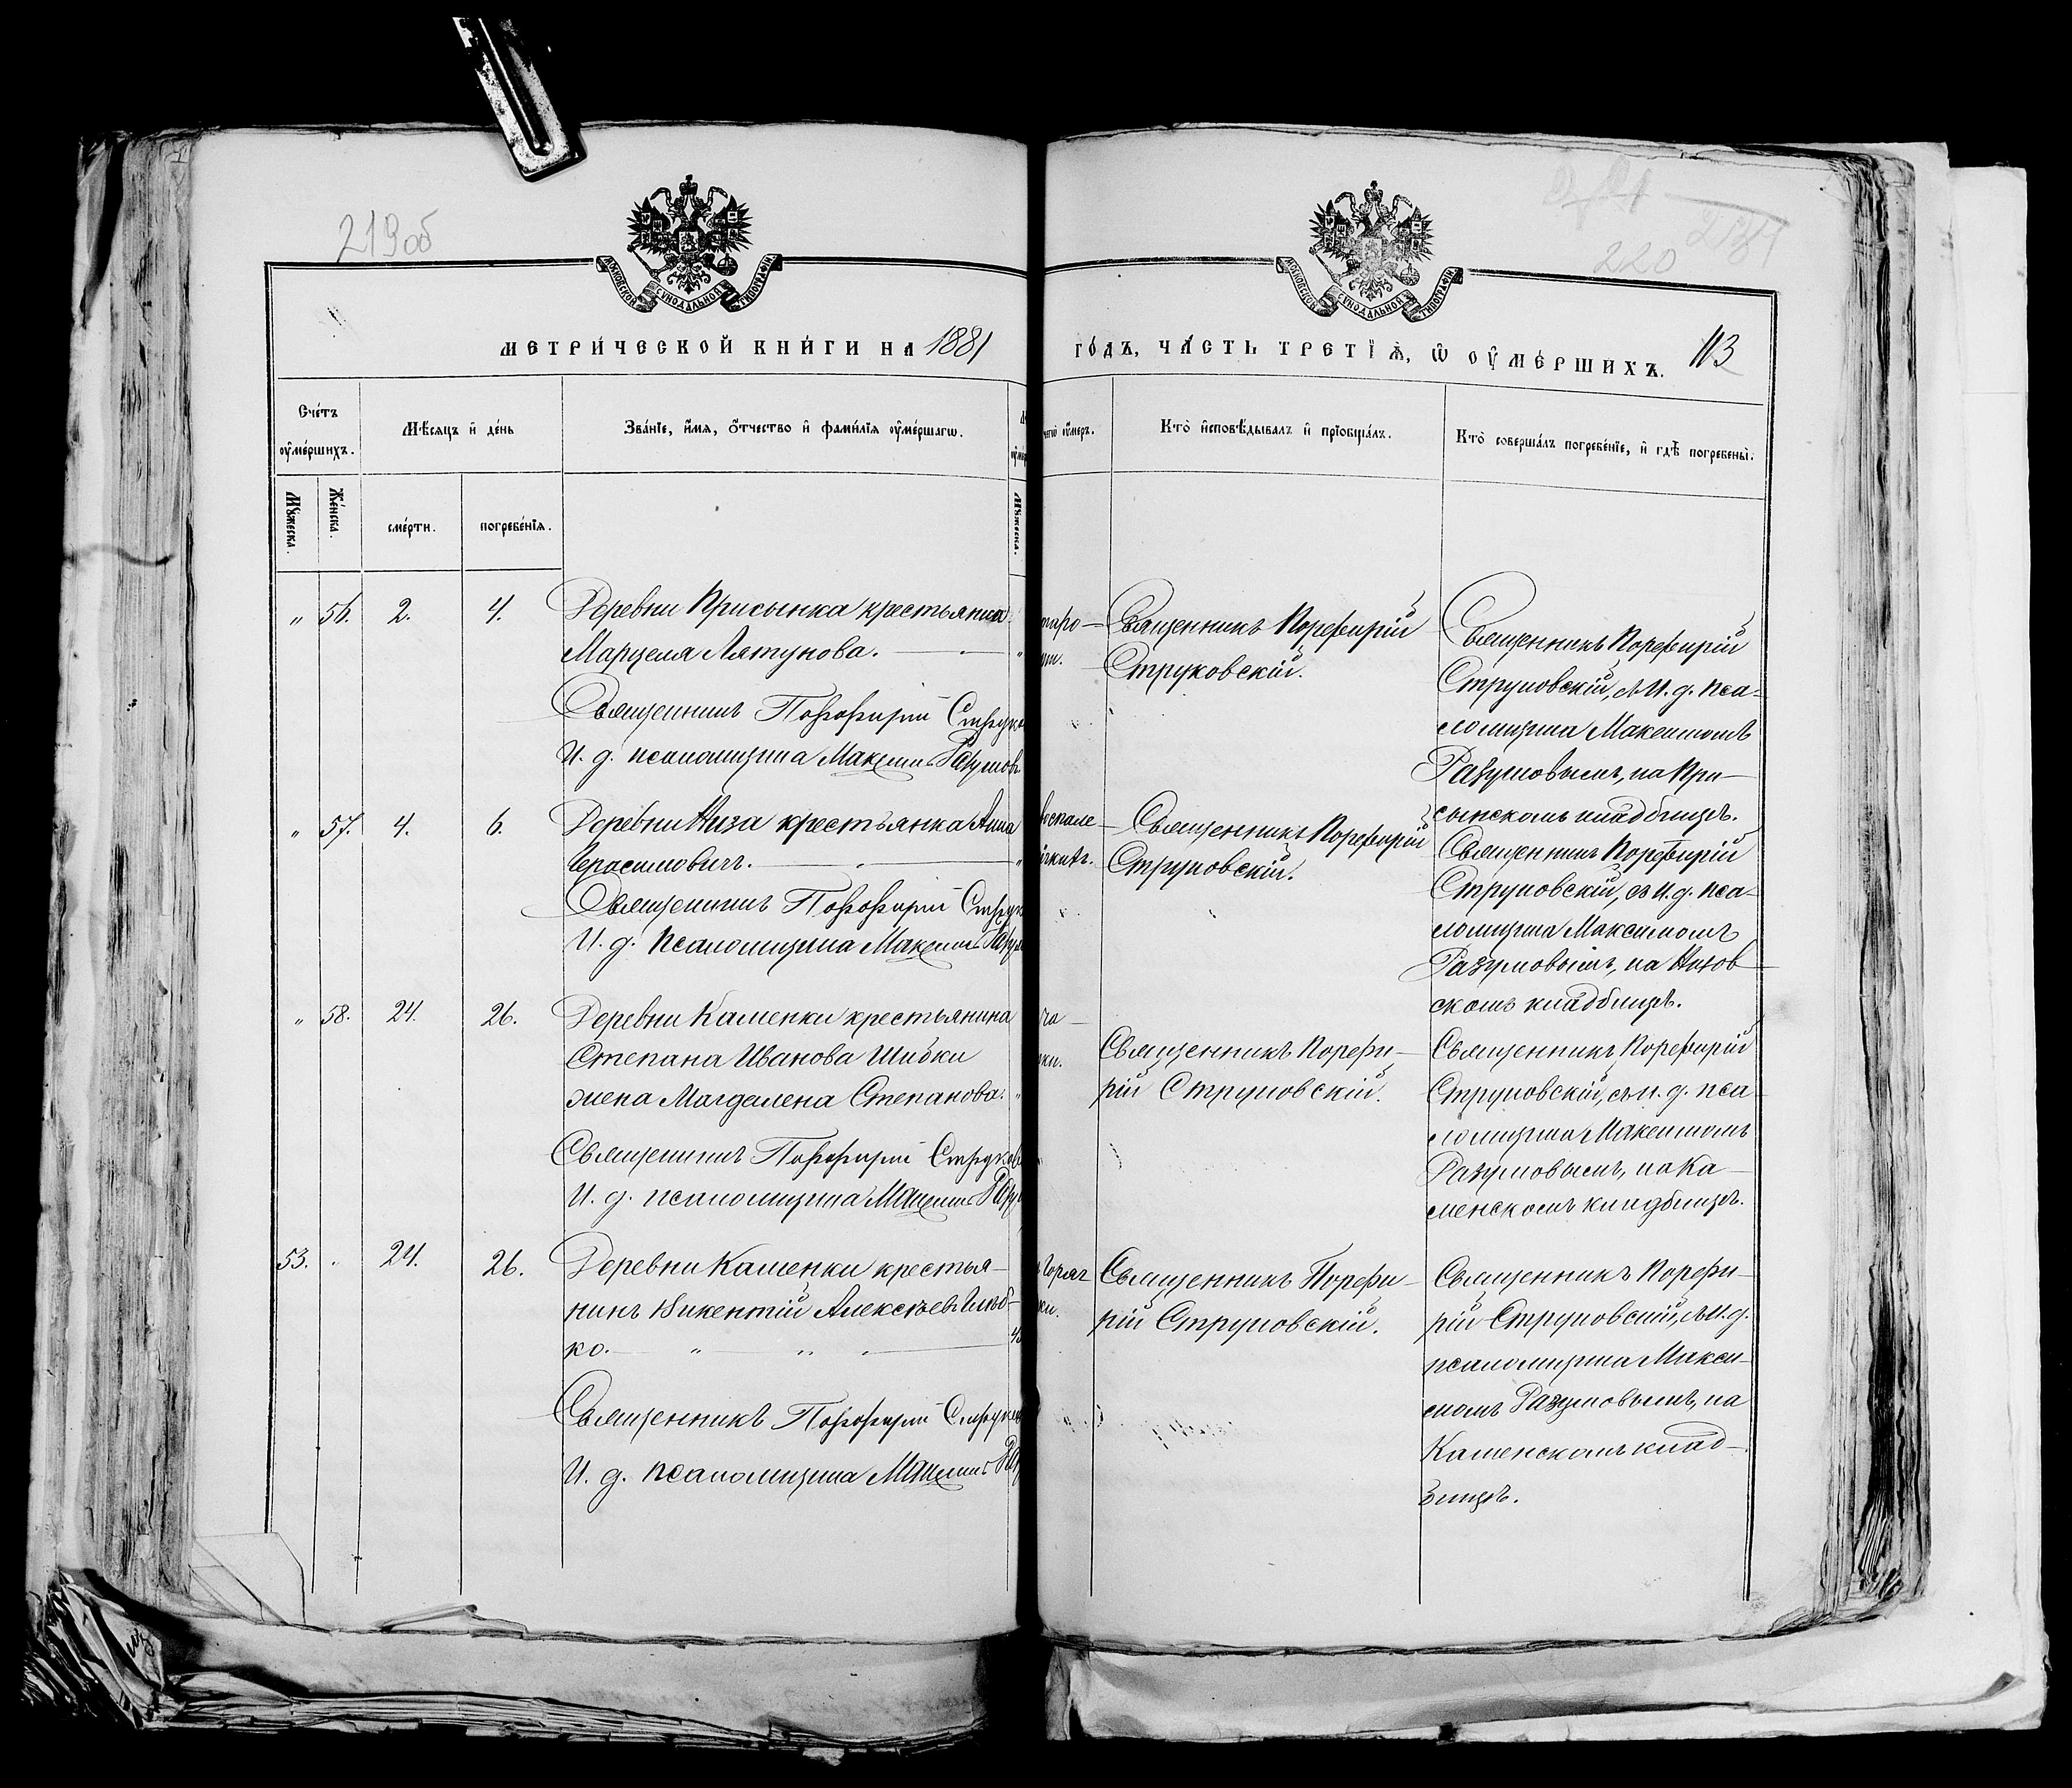 219 об
220
МОСКОВСКОЙ СѴНОДАЛЬНОЙ ТИПОГРАФІИ
МОСКОВСКОЙ СѴНОДАЛЬНОЙ ТИПОГРАФІИ
МЕТРИ́ЧЕСКОЙ КНИ́ГИ НА 1881
ГО́ДЪ, ЧА́СТЬ ТРЕТІѦ, Ѡ ОУМЕ́РШИХЪ. 113
Сче́тъ оуме́ршихъ.
Мѣсяцъ и де́нь
Зва́нїе, и҆мя, о҆тчество и фами́лїя оуме́ршагѡ.
чегѡ оумеръ.
Кто̀ и҆сповѣ́дывалъ и прїобща́лъ.
Кто̀ соверша́лъ погребе́нїе, и гдѣ̀ погребены̀.
Мꙋжеска.
Же́нска.
сме́рти.
погребе́нїя.
Мꙋжеска.
" 56. 2. 4.
Деревни Присынка крестьянка
Марцеля Лятунова. "
Священникъ Порфирій Струков
И. д. псаломщика Максимъ Разумовъ
таро-
ти.
Священникъ Порфирій
Струковскій.
Священникъ Порфирій
Струковскій, съ И. д. пса-
ломщика Максимомъ
Разумовымъ, на При-
сынскомъ кладбищѣ.
" 57. 4. 6.
Деревни Низа крестьянка Анна
Герасимовичъ. "
Священникъ Порфирій Струк
И. д. псаломщика Максимъ Разум
воспале-
Священникъ Порфирій
Струковскій.
Священникъ Порфирій
Струковскій, съ И. д. пса-
ломщика Максимомъ
Разумовымъ, на Низов-
скомъ кладбищѣ.
" 58. 24. 26.
Деревни Каменки крестьянина
Степана Иванова Шибки
жена Магдалена Степанова. "
Священникъ Порфирій Струков
И. д. псаломщика Максимъ Разу
ки.
Священникъ Порфи-
рій Струковскій.
Священникъ Порфирій
Струковскій, съ и. д. пса-
ломщика Максимомъ
Разумовымъ, на Ка-
менскомъ кладбищѣ.
53. " 24. 26.
Деревни Каменки крестья-
нинъ Викентій Алексѣевъ Глѣб-
ко. " " "
Священникъ Порфирій Струков
И. д. псаломщика Максимъ Раз
Горяч
ки.
Священникъ Порфи-
рій Струковскій.
Священникъ Порфи-
рій Струковскій, съ И. д.
псаломщика Макси-
момъ Разумовымъ, на
Каменскомъ клад-
бищѣ.